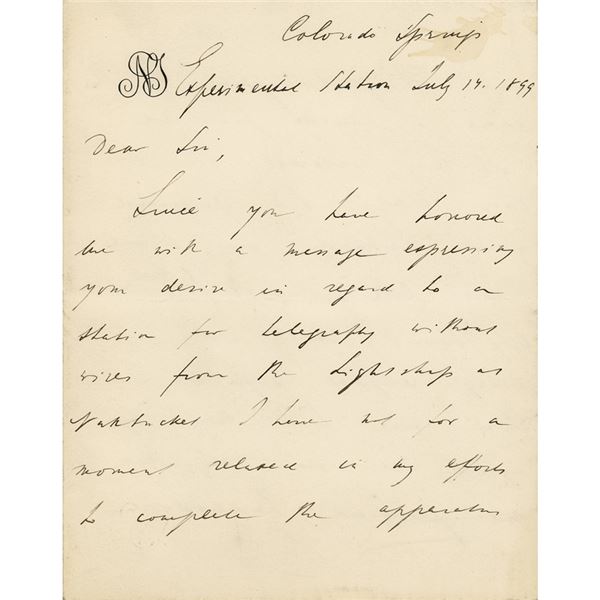 Colorado Springs
NT Experimental Station July 14. 1899
Dear Sir,
Since you have honored
me with a message expressing
your desire in regard to a
station for telegraphy without
wires from the Lightship at
Nantucket I have not for a
moment relaxed in my efforts
to complete the apparatus